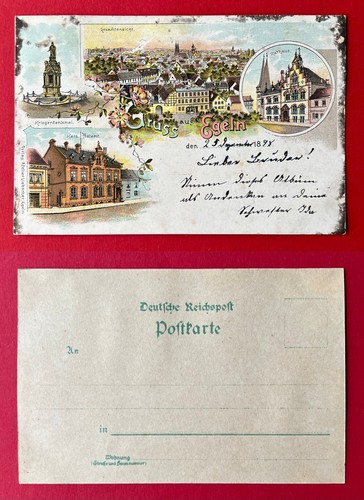 Gesamtansicht
Rathaus
Kriegerdenkmal
Gruss aus Egeln
Kais. Postamt
den 25 Dezember 1898
Lieber Bruder!
Nimm dieses Album
als Andenken an deine
Schwester Ida
Deutsche Reichspost
Postkarte
An
in
Wohnung
(Straße und Hausnummer)